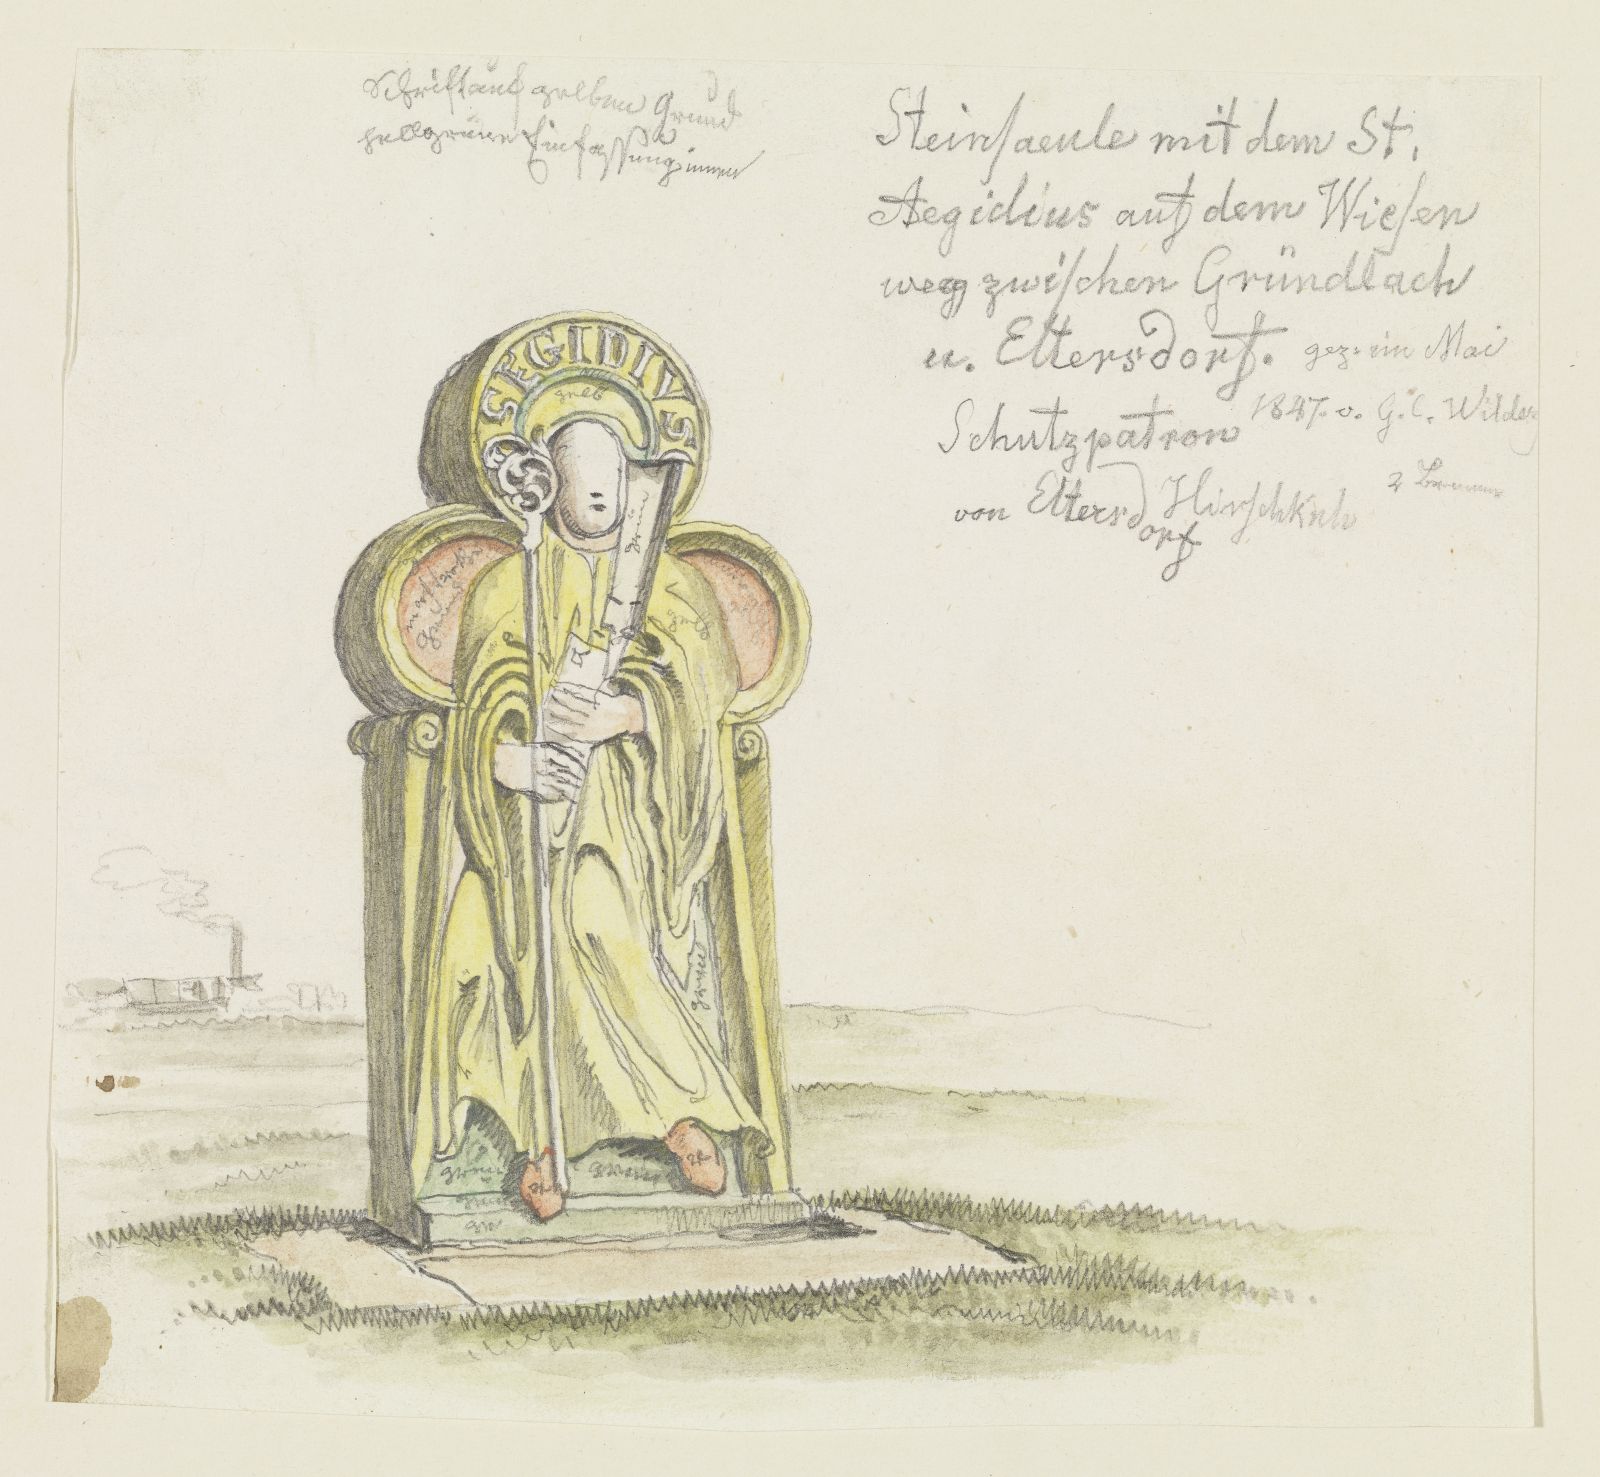 Schrift auf gelben Grund
hellgrüne Einfassung innen
Steinsaeule mit dem St.
Aegidius auf dem Wiesen
weg zwischen Gründlach
u. Eltersdorf. gez. im Mai
1847. v. G. C. Wilder
Schutzpatron
von Eltersdorf Hirschkuh
2
S EGIDIVS
gelb
grün
gelb
grün
grün
grün